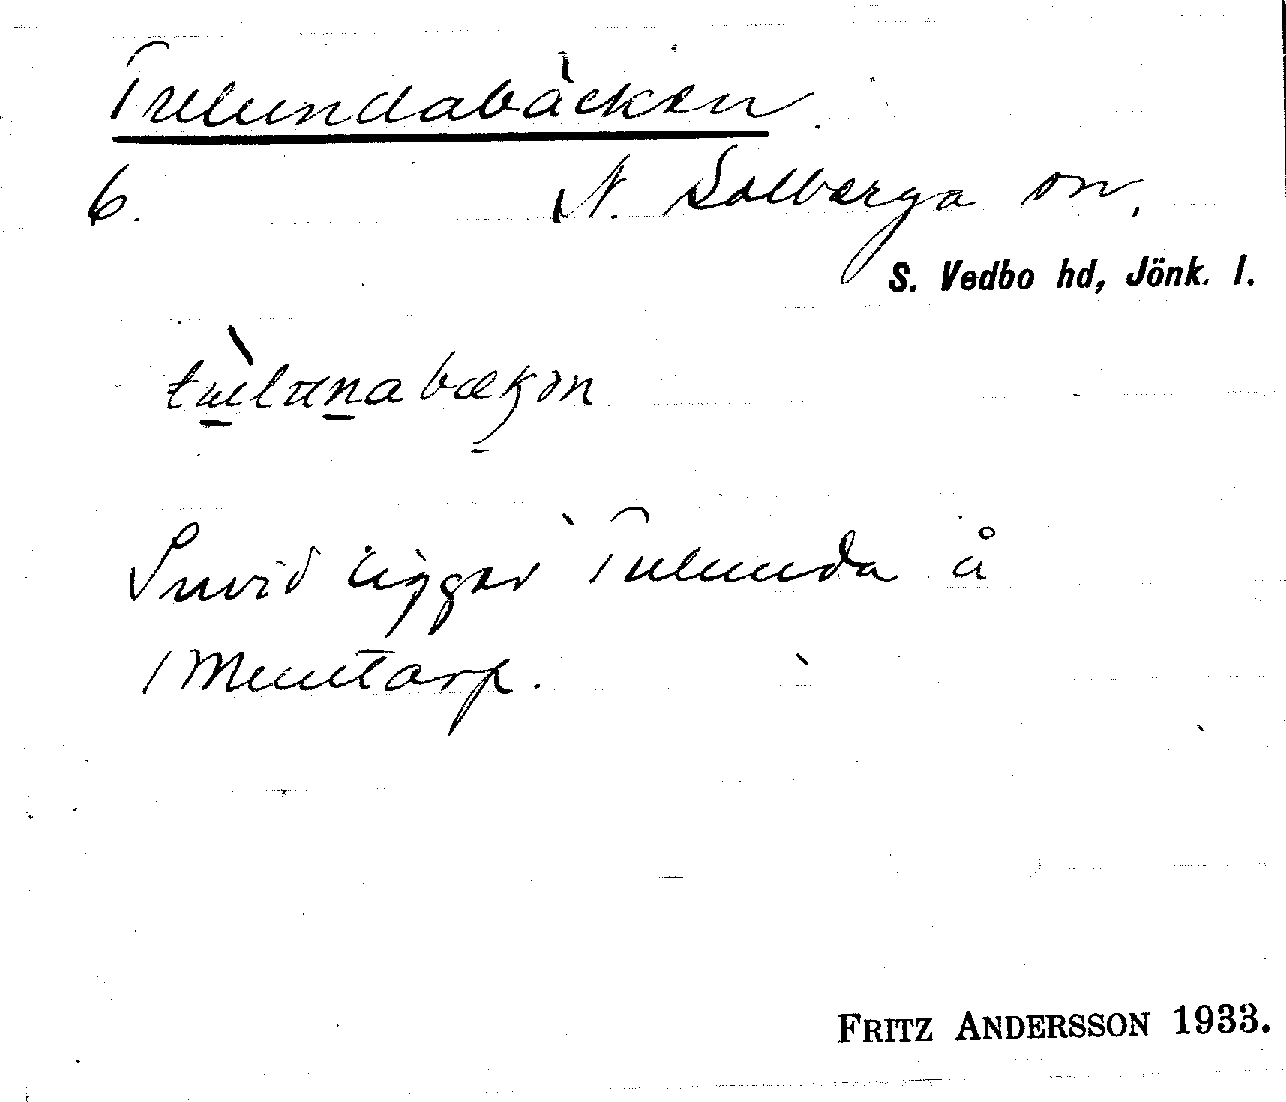 Tulundabäcken.
6. N. Solberga sn,
S. Vedbo hd, Jönk. l.
tùlunabækən
Invid ligger Tulunda å
Muntarp.
FRITZ ANDERSSON 1933.